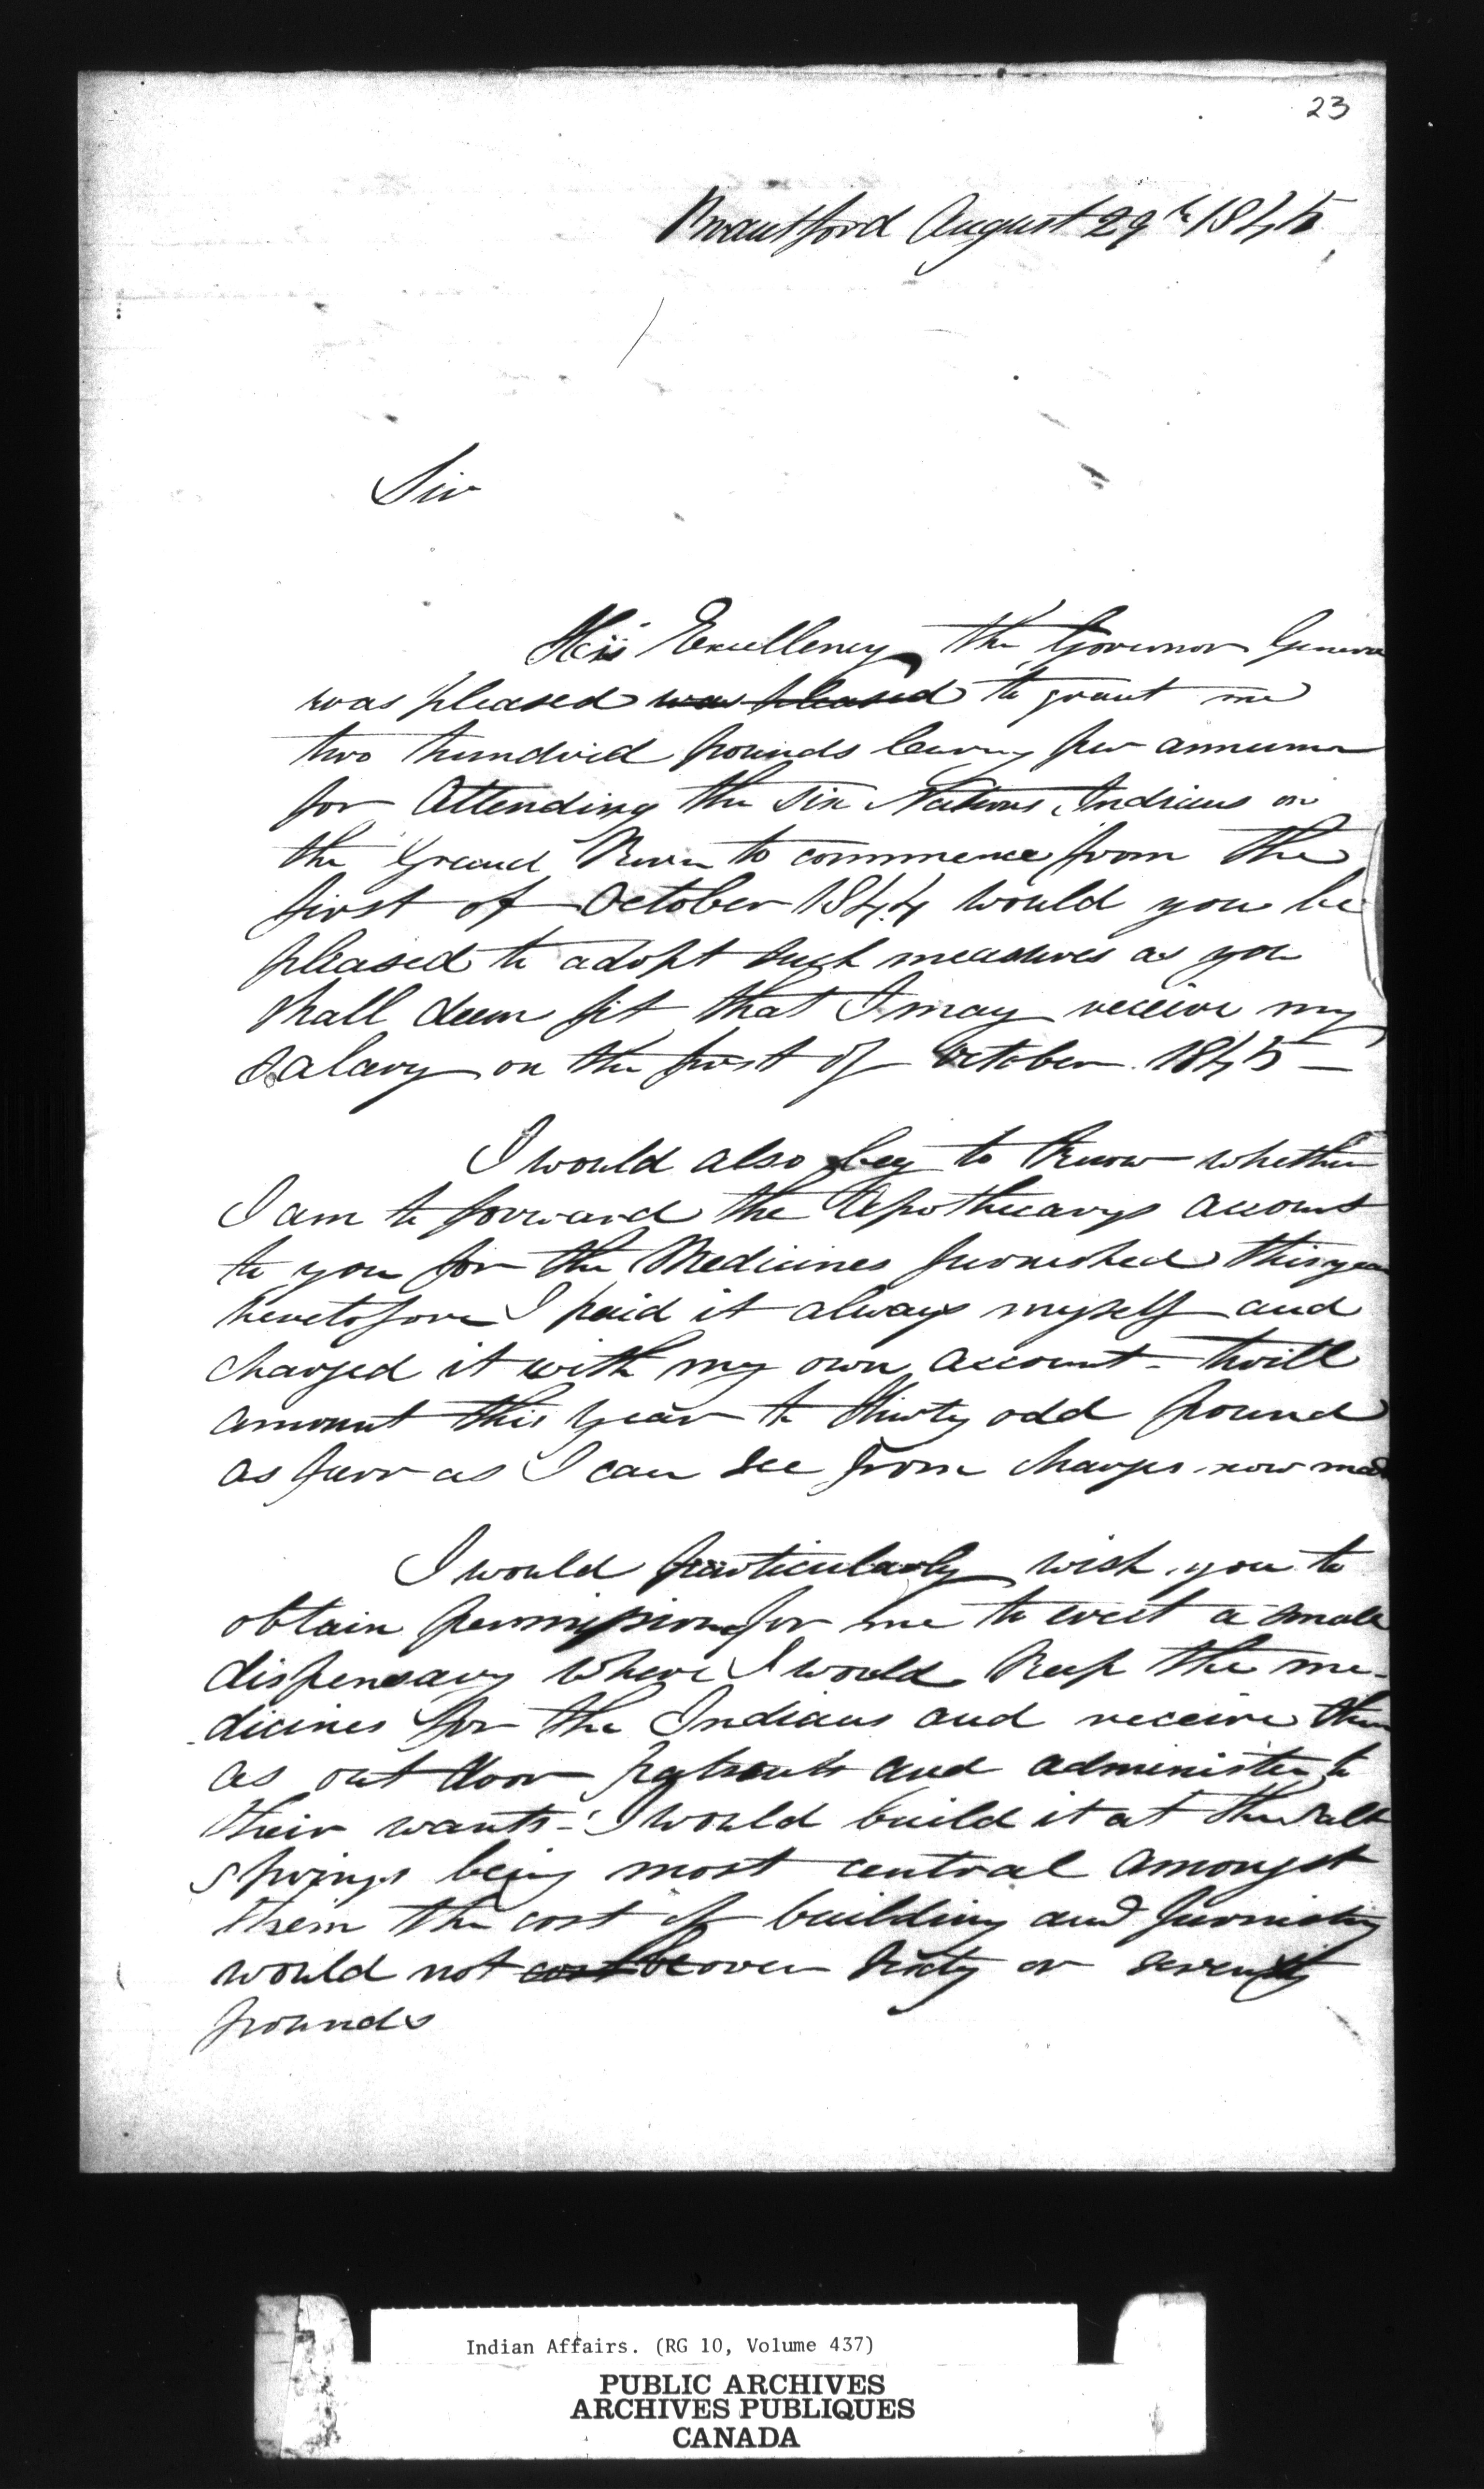 23
Brantford August 29th 1845
Sir
His Excellency the Governor Genera
was pleased was pleased to grant me
two hundred pounds per annum
for Attending the Six Nations Indians on
the Grand River to commence from the
first of October 1844 would you be
pleased to adopt such measures as you
shall deem fit that I may receive my
salary on the first of October 1845 —
I would also beg to know whether
I am to forward the Apothecarys account
to you for the Medicines furnished this year
heretofore I paid it always myself and
charged it with my own account - twill
amount this year to thirty odd pound
as farr as I can see from charges now made
I would particularly wish you to
obtain permission for me to erect a small
dispensary where I would keep the me-
dicines for the Indians and receive them
as out door patients and administer to
their wants - I would build it at the Salt
springs being most central amongst
them the cost of building and furnishing
would not cost be over sixty or seventy
pounds
Indian Affairs. (RG 10, Volume 437)
PUBLIC ARCHIVES
ARCHIVES PUBLIQUES
CANADA